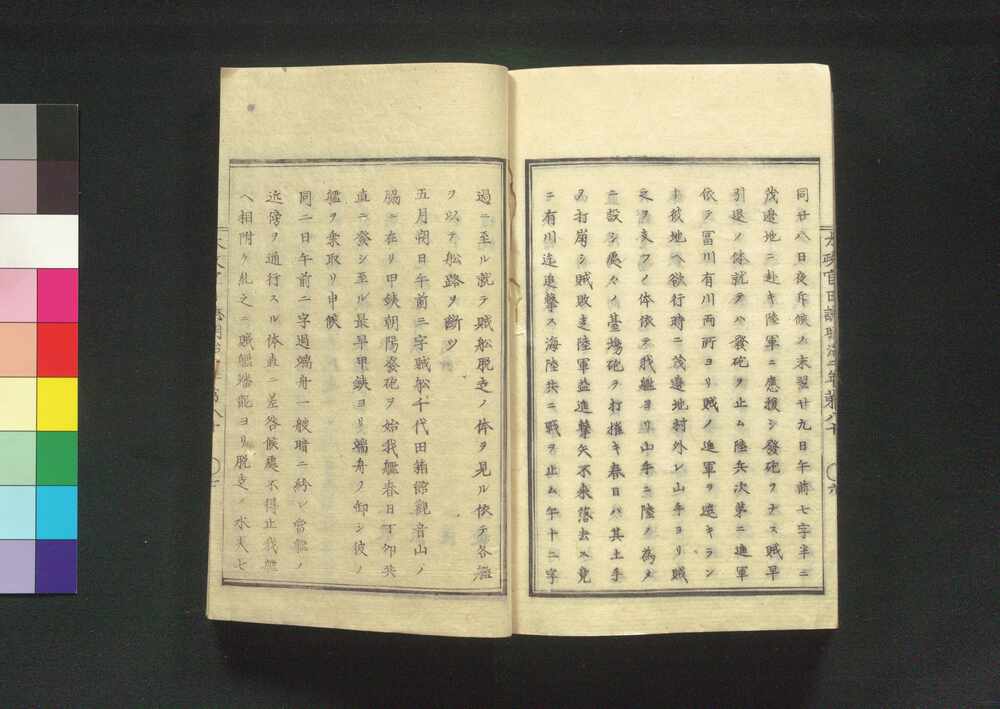 同廿八日夜斥候ノ末翌廿九日午前七字半ニ
茂邊地ニ赴キ陸軍ニ應援シ發砲ヲナス賊早
引退ノ体就テハ發砲ヲ止ム陸兵次第ニ進軍
依テ冨川有川両所ヨリ賊ノ進軍ヲ遮キラン
ト彼地ヘ欲行時ニ茂邊地村外レ山手ヨリ賊
之ヲ支フノ体依テ我艦ヨリ山手ニ陸ノ為メ
ニ設シ處々ノ臺塲砲ヲ打摧キ春日ハ其土手
ヲ打崩シ賊敗走陸軍益進撃矢不来落去ス竟
ニ有川迄進撃ス海陸共ニ戰ヲ止ム午十二字
過ニ至ル就テ賊舩脱走ノ体ヲ見ル依テ各艦
ヲ以テ舩路ヲ断ツ
五月朔日午前三字賊舩千代田箱館觀音山ノ
脇ニ在リ甲鉄朝陽發砲ヲ始我艦春日丁卯共
直ニ發シ至ル最早甲鉄ヨリ端舟ノ卸シ彼ノ
艦ヲ乗取リ申候
同二日午前二字過端舟一艘暗ニ紛レ當艦ノ
近傍ヲ通行スル体直ニ差咎候處不得止我艦
ヘ相附ケ糺之ニ賊艦蟠龍ヨリ脱走ノ水夫七
太政官日誌明治二年第八十
六